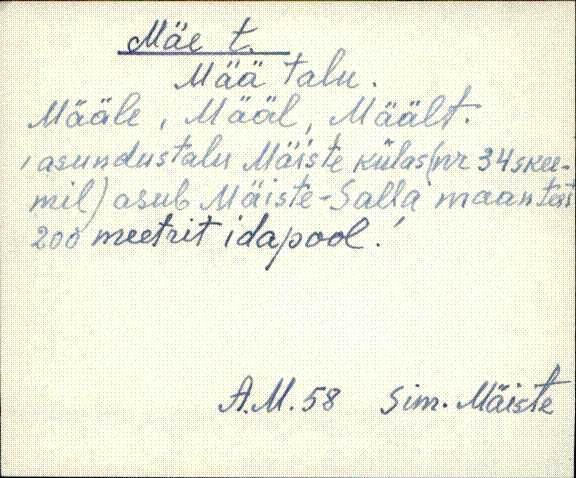 Mäe t.
Mää talu.
Määle, Määl, Mäält.
, asundustalu Mäiste külas (nr 34 skee-
mil) asub Mäiste-Salla maanteest
200 meetrit idapool.'
A.M. 58 Sim. Mäiste